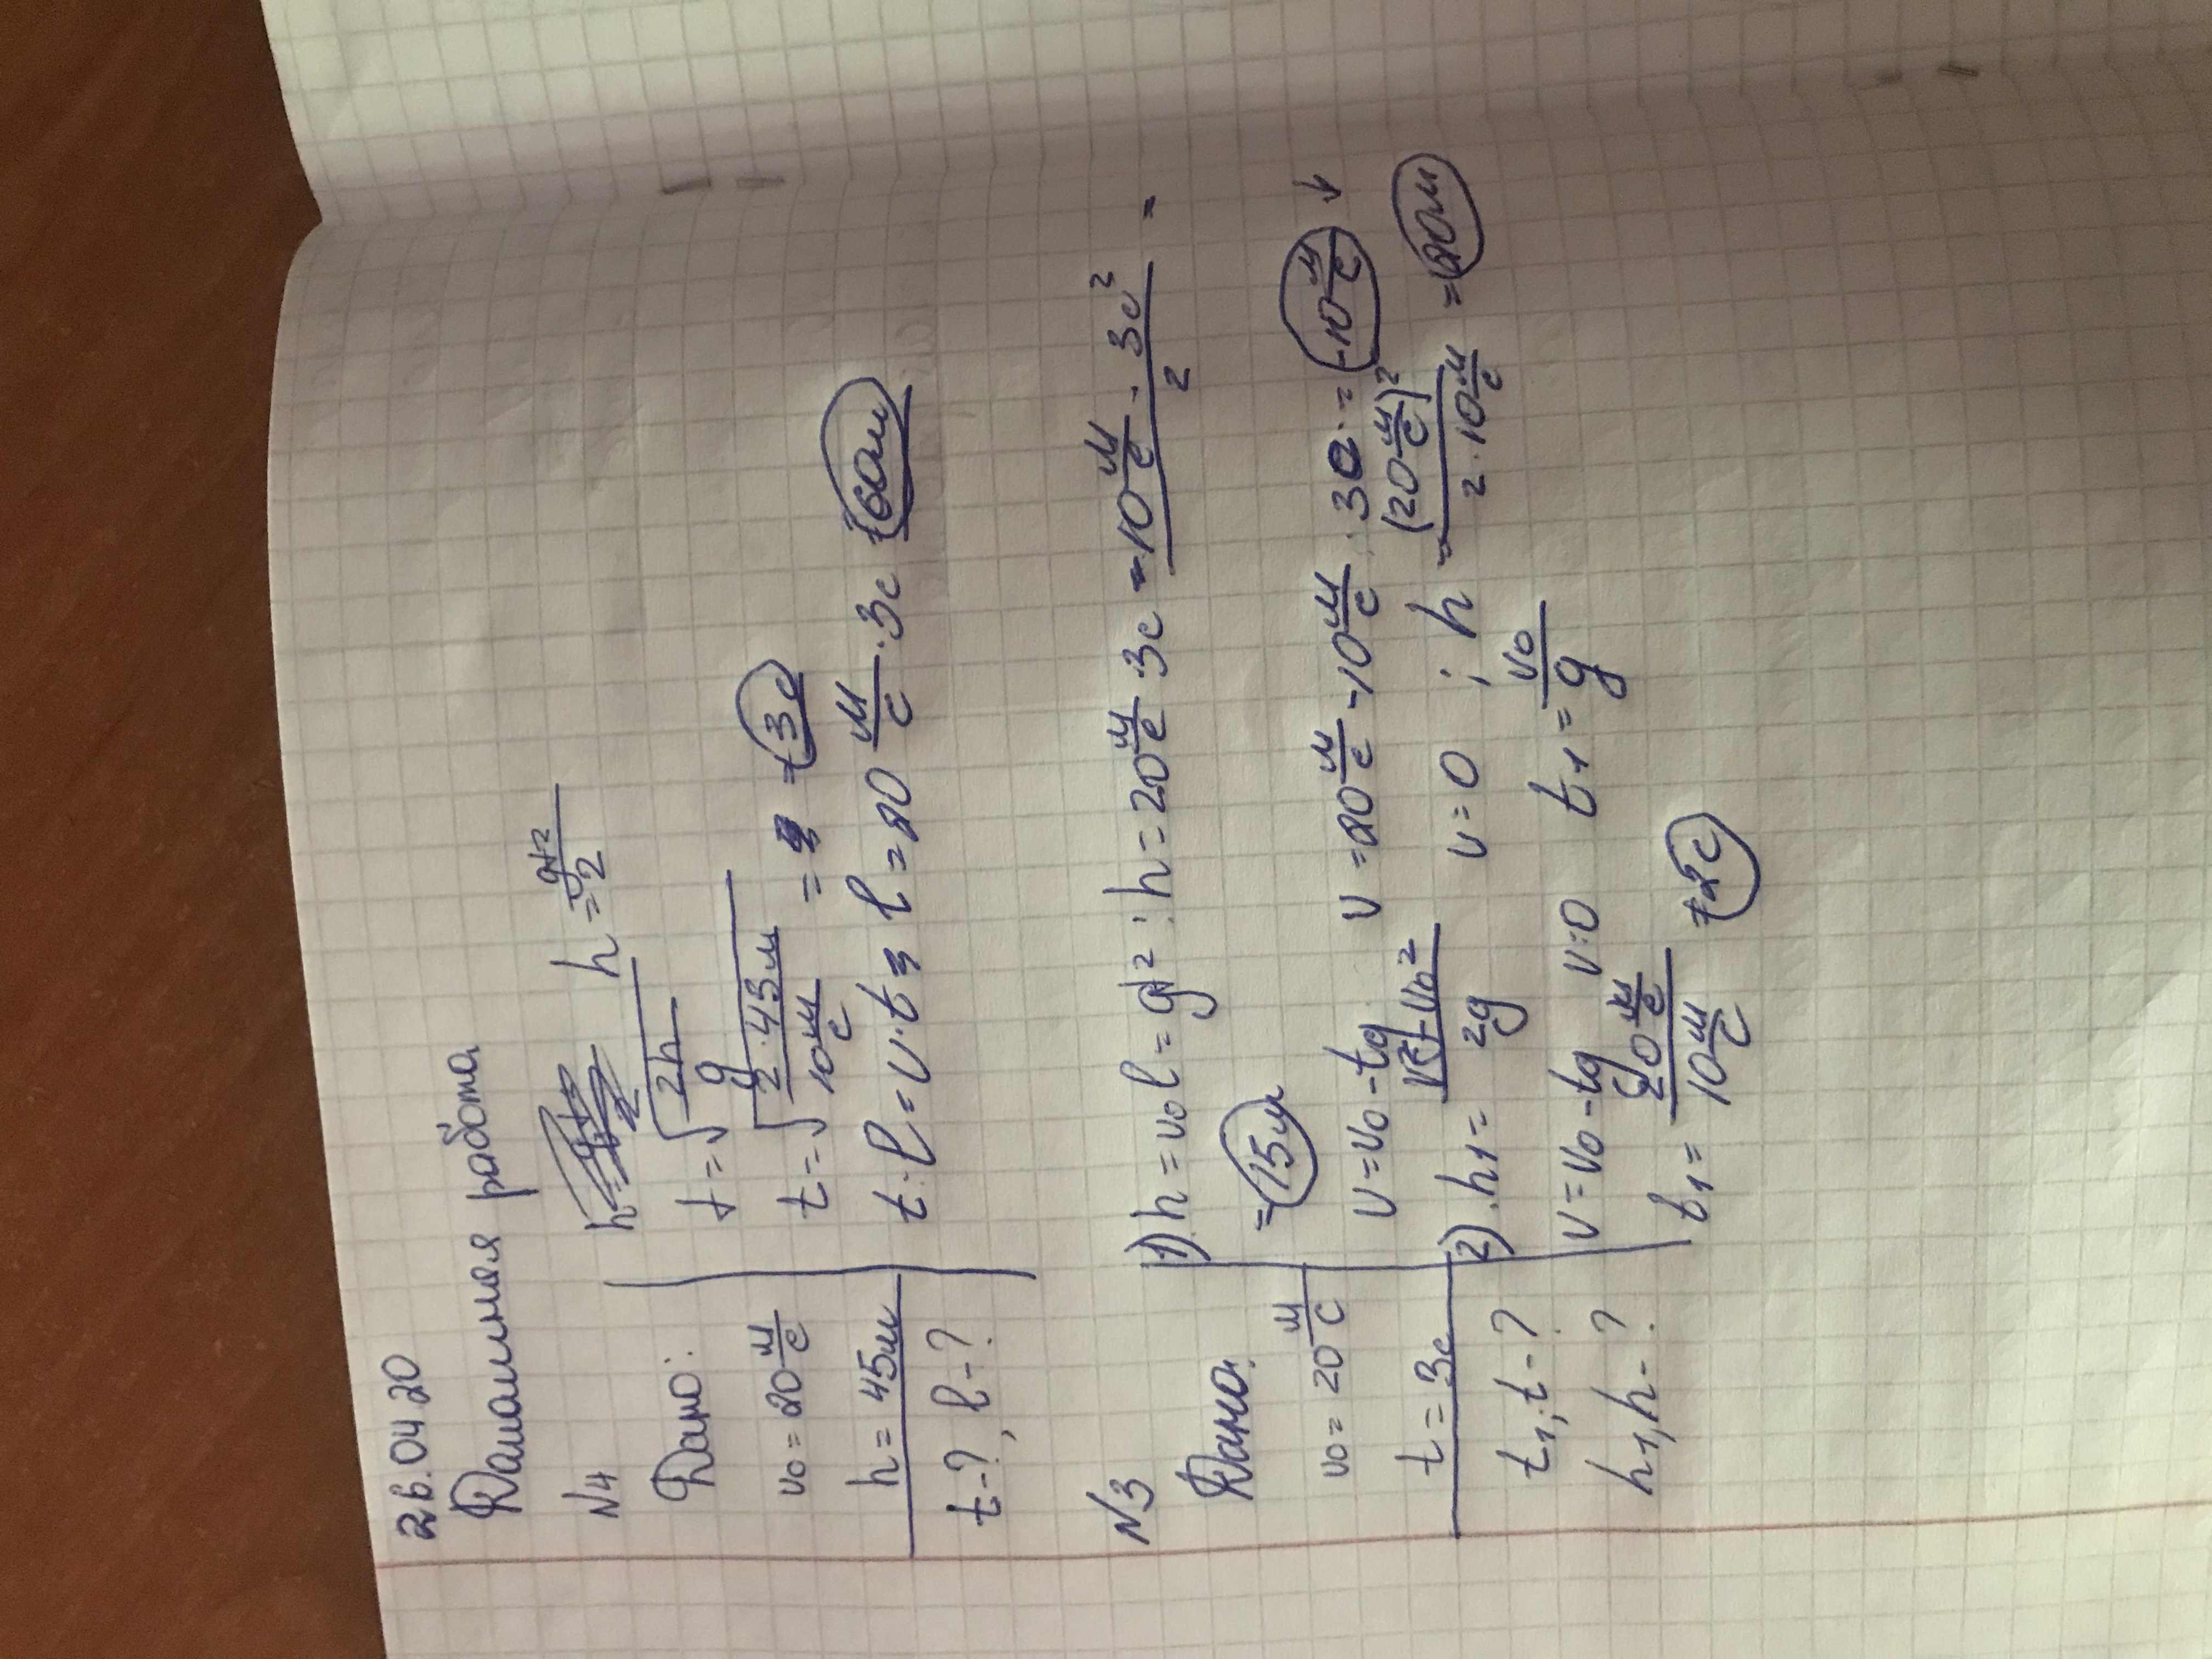 26.04.20
Домашняя работа
N4
Дано:
v₀ = 20 м/с
h = 45м
t-?, l-?
h = gt²/2
t = √(2h/g)
t = √(2·45м/10 м/с) = 3с
t: l = v·t; l = 20 м/с · 3с = 60м
N3
Дано:
v₀ = 20 м/с
t = 3с
t₁; t-?
h₁, h-?
1) h = v₀ l = gt² : h = 20 м/с · 3с = -10 м/с · 3с²/2 =
= 15м
v = v₀ - tg v = 20 м/с - 10 м/с · 3с = -10 м/с ↓
2) h₁ = v² - v₀²/2g v = 0 ; h = (20 м/с)²/2·10 м/с = 20м
v = v₀ - tg v = 0 t₁ = v₀/g
t₁ = 20 м/с/10 м/с = 2с